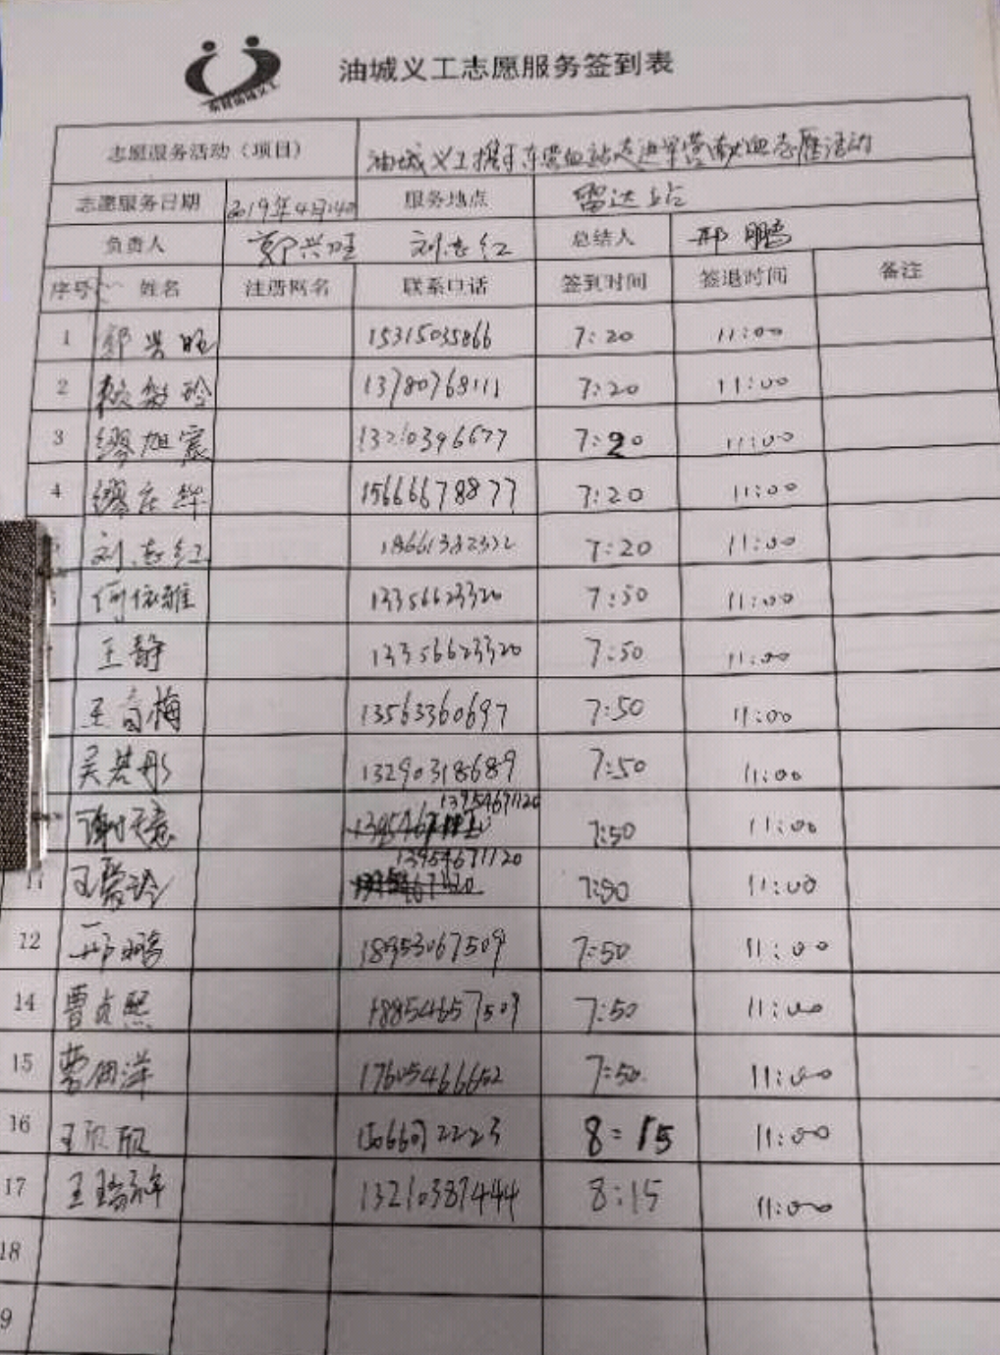 油城义工志愿服务签到表
志愿服务活动（项目） 油城义工携手东营血站走进军营献血志愿活动
志愿服务日期 2019年4月14日 服务地点 雷达站
负责人 郭兴旺 刘志红 总结人 邢鹏
序号 姓名 注册网名 联系电话 签到时间 签退时间 备注
1 郭兴旺 15315035866 7:20 11:00
2 13780768111 7:20 11:00
3 缪旭震 13210396677 7:20 11:00
4 缪庄 15666678877 7:20 11:00
刘志红 18661382322 7:20 11:00
何依雅 13356623320 7:50 11:00
王静 13356623320 7:50 11:00
王育梅 13563360697 7:50 11:00
吴若彤 13290318689 7:50 11:00
谢天意 13954671120 7:50 11:00
11 王爱玲 13954671120 7:50 11:00
12 邢鹏 18953067509 7:50 11:00
14 曹贞熙 18854657507 7:50 11:00
15 洋 17605466652 7:50 11:00
16 王欣欣 15066072223 8:15 11:00
17 王 祥 13210387444 8:15 11:00
18
9